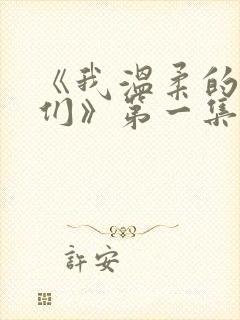 《我温柔的
们》第一集
許安